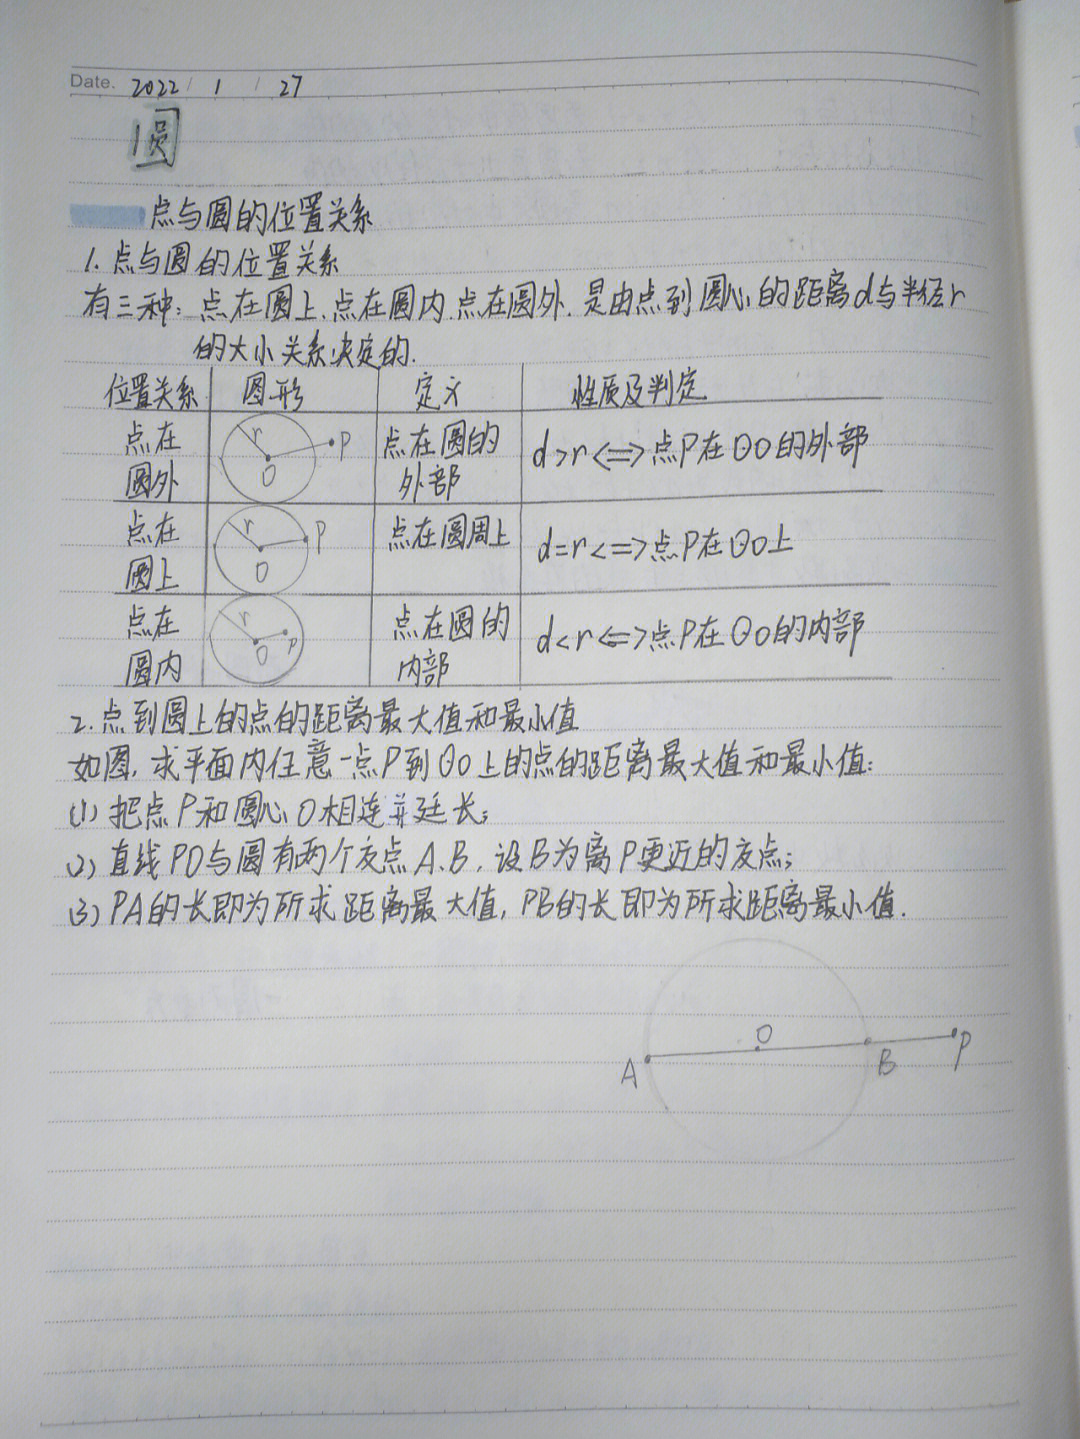 Date. 2022 / 1 / 27
圆
点与圆的位置关系
1. 点与圆的位置关系
有三种: 点在圆上、点在圆内、点在圆外. 是由点到圆心的距离d与半径r
的大小关系决定的.
位置关系 图形 定义 性质及判定
点在圆外 r O P 点在圆的外部 d>r<=>点P在⊙O的外部
点在圆上 r O P 点在圆周上 d=r<=>点P在⊙O上
点在圆内 r O P 点在圆的内部 d<r<=>点P在⊙O的内部
2. 点到圆上的点的距离最大值和最小值
如图, 求平面内任意一点P到⊙O上的点的距离最大值和最小值:
(1) 把点P和圆心O相连并延长;
(2) 直线PO与圆有两个交点A.B, 设B为离P更近的交点;
(3) PA的长即为所求距离最大值, PB的长即为所求距离最小值.
A O B P